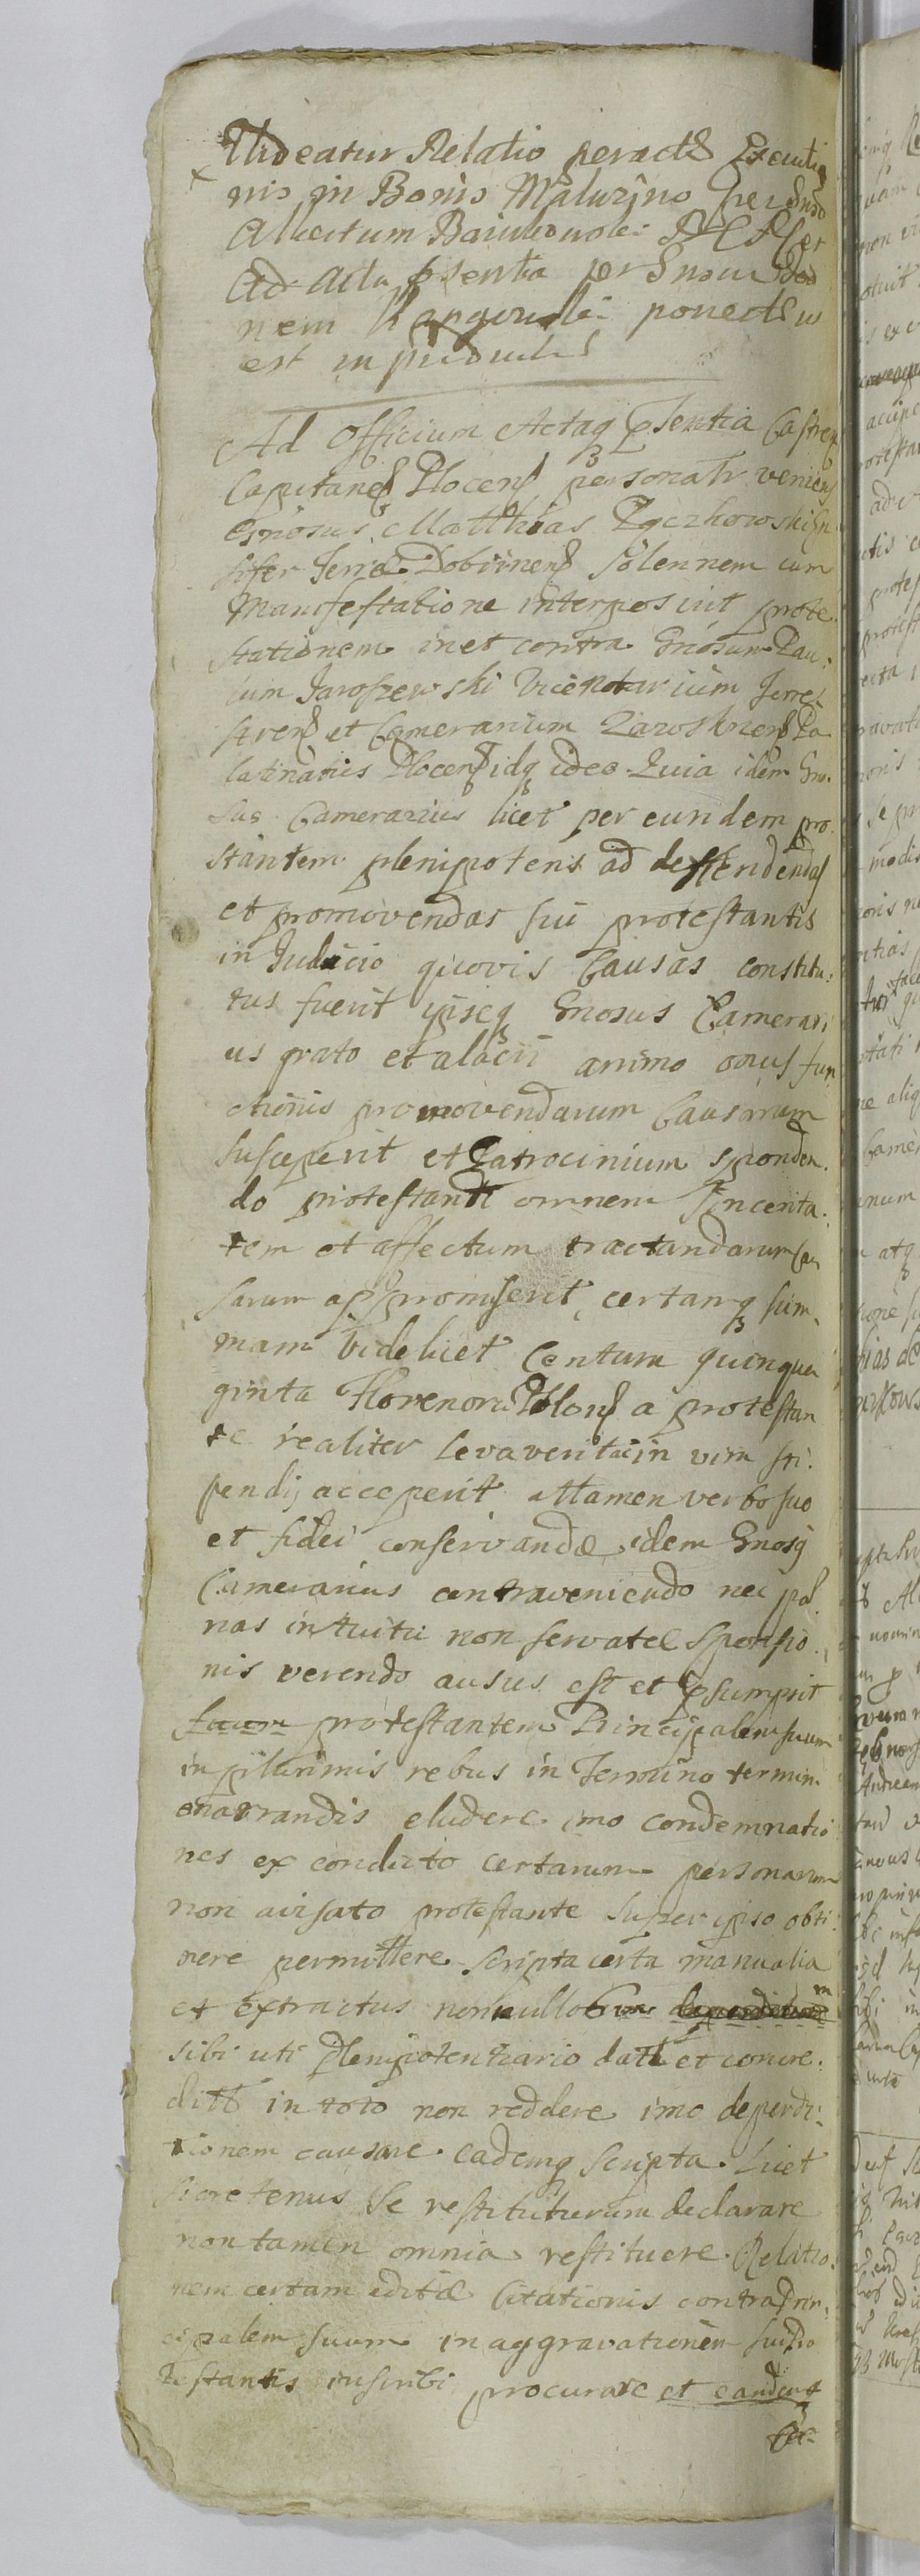 Videatur Relatio peractæ Executio
nis in Bonis Maluzino per Gnosum
Albertum
Ad Acta pñtia per Gnosum
nem
est
Ad Officium Actaq pñsentia Castren
Capitanei Plocens personalr veniens
Gnosus Matthias Pączkowski En
sifer Terræ Dobrinens solennem cum
Manifestatione interposuit prote
stationem in et contra Gnosum Pau
lum Jaroszewski Vicenotarium Terre
stren et Camerarium Zawoskrzens Pa
latinatus Plocens idq ideo Quia idem Gno
sus Camerarius licet per eundem pro
stantem plenipotens ad deffendendas
et promovendas sui protestantis
in Judicio quovis Causas constitu:
tus fuerit ipseq Gnosus Camerari
us grato et alacri animo onus fun
ctionis promovendarum Causarum
susceperit et Patrocinium sponden.
do protestanti omnem sincerita:
tem et affectum tractandarum Cau
sarum appromiserit, certamq sum
mam videlicet Centum quinqua
ginta Florenorum Polons a protestan
te realiter levaverit ac in vim sti:
pendij acceperit attamen verbo suo
et fidei conservandæ idem Gnosq
Camerarius contraveniendo nec pæ
nas intuitu non servatæ sponsio
nis verendo ausus est et psumpsit
protestantem Principalem suum
in plurimis rebus in Termino termin.
enarrandis eludere imo condemnatio
nes ex conducto certarum personarum
non avisato protestante super ipso obti:
nere permittere scripta certa manualia
et extractus nonnullos
sibi uti Plenipotentiario datt et concre:
ditt in toto non reddere imo deperdi:
tionem causare eademq scripta licet
oretenus se restituturum declarare
non tamen omnia restituere. Relatio:
nem certam editæ Citationis contra Prin:
cipalem suum in aggravationem sui Pro
testantis inscribi procurare et eandemq